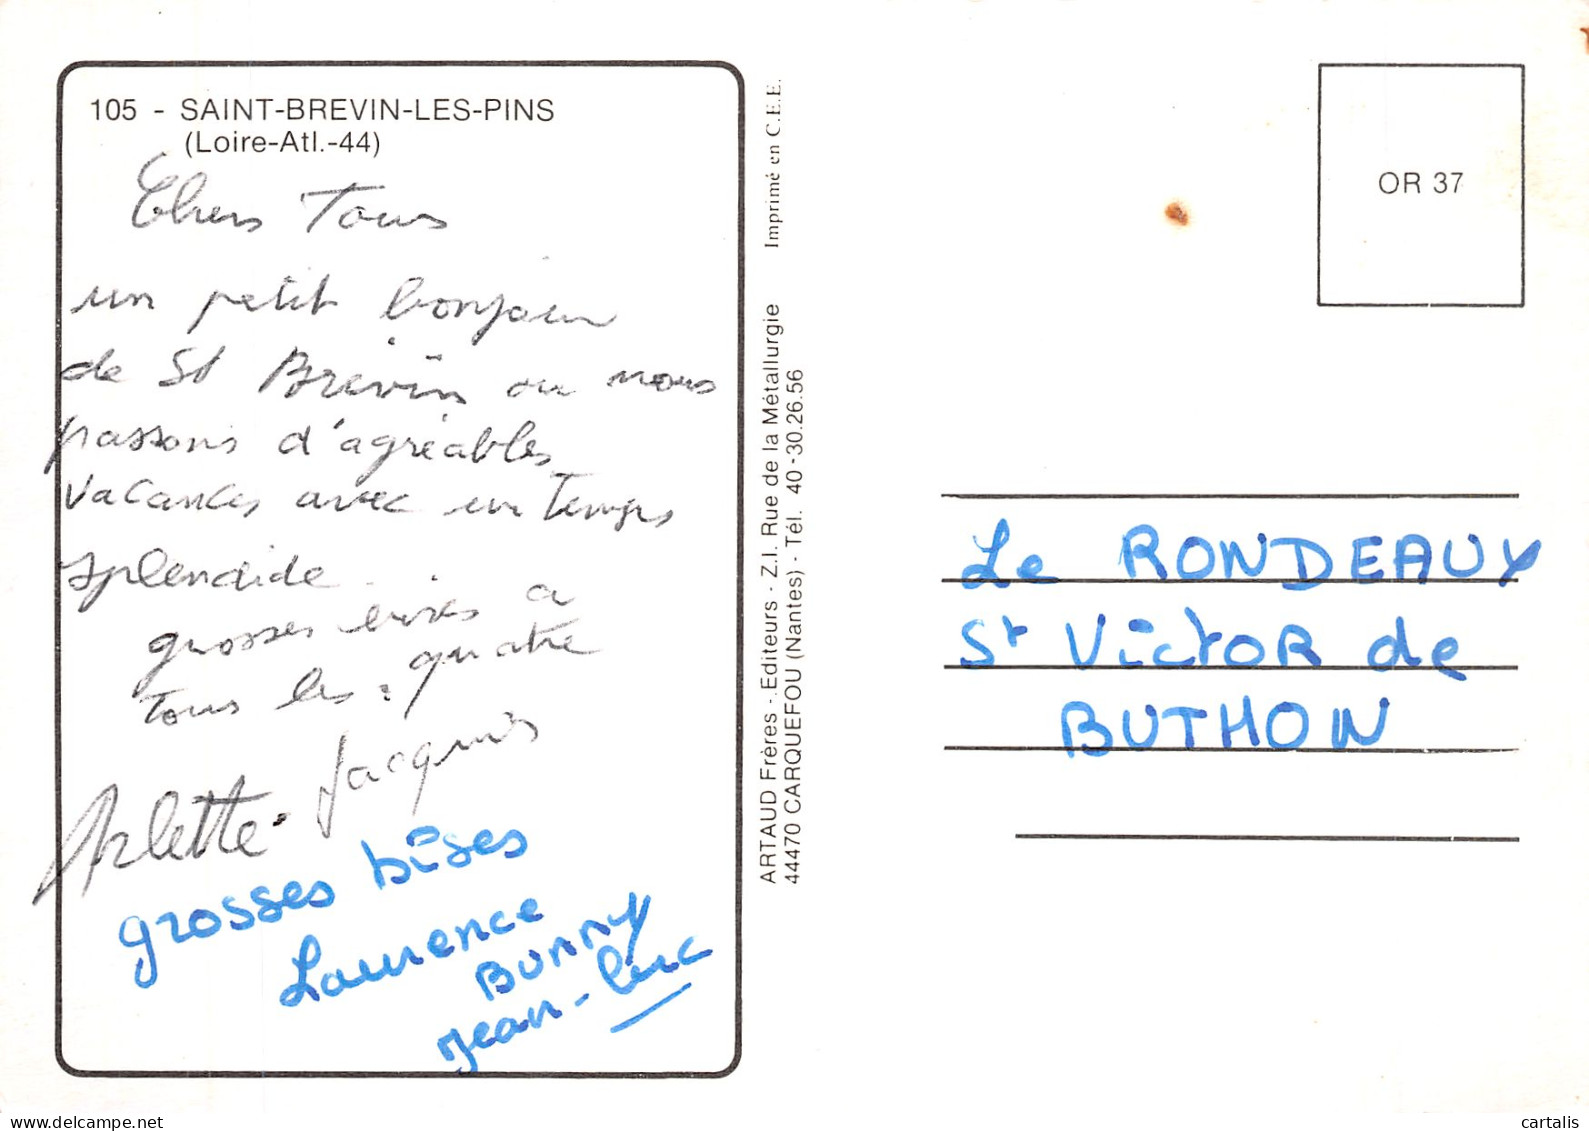 105 - SAINT-BREVIN-LES-PINS
(Loire-Atl.-44)
Chers Tous
un petit bonjour
de St Brévin ou nous
passons d'agréables
vacances avec un temps
splendide.
grosses bises a
tous les quatre
Arlette - Jacquis
grosses bises
Laurence
Bunny
Jean-Luc
ARTAUD Frères - Editeurs - Z.I. Rue de la Métallurgie Imprimé en C.E.E.
44470 CARQUEFOU (Nantes) - Tél. 40-30.26.56
OR 37
Le RONDEAUX
St Victor de
BUTHON
www.delcampe.net
cartalis